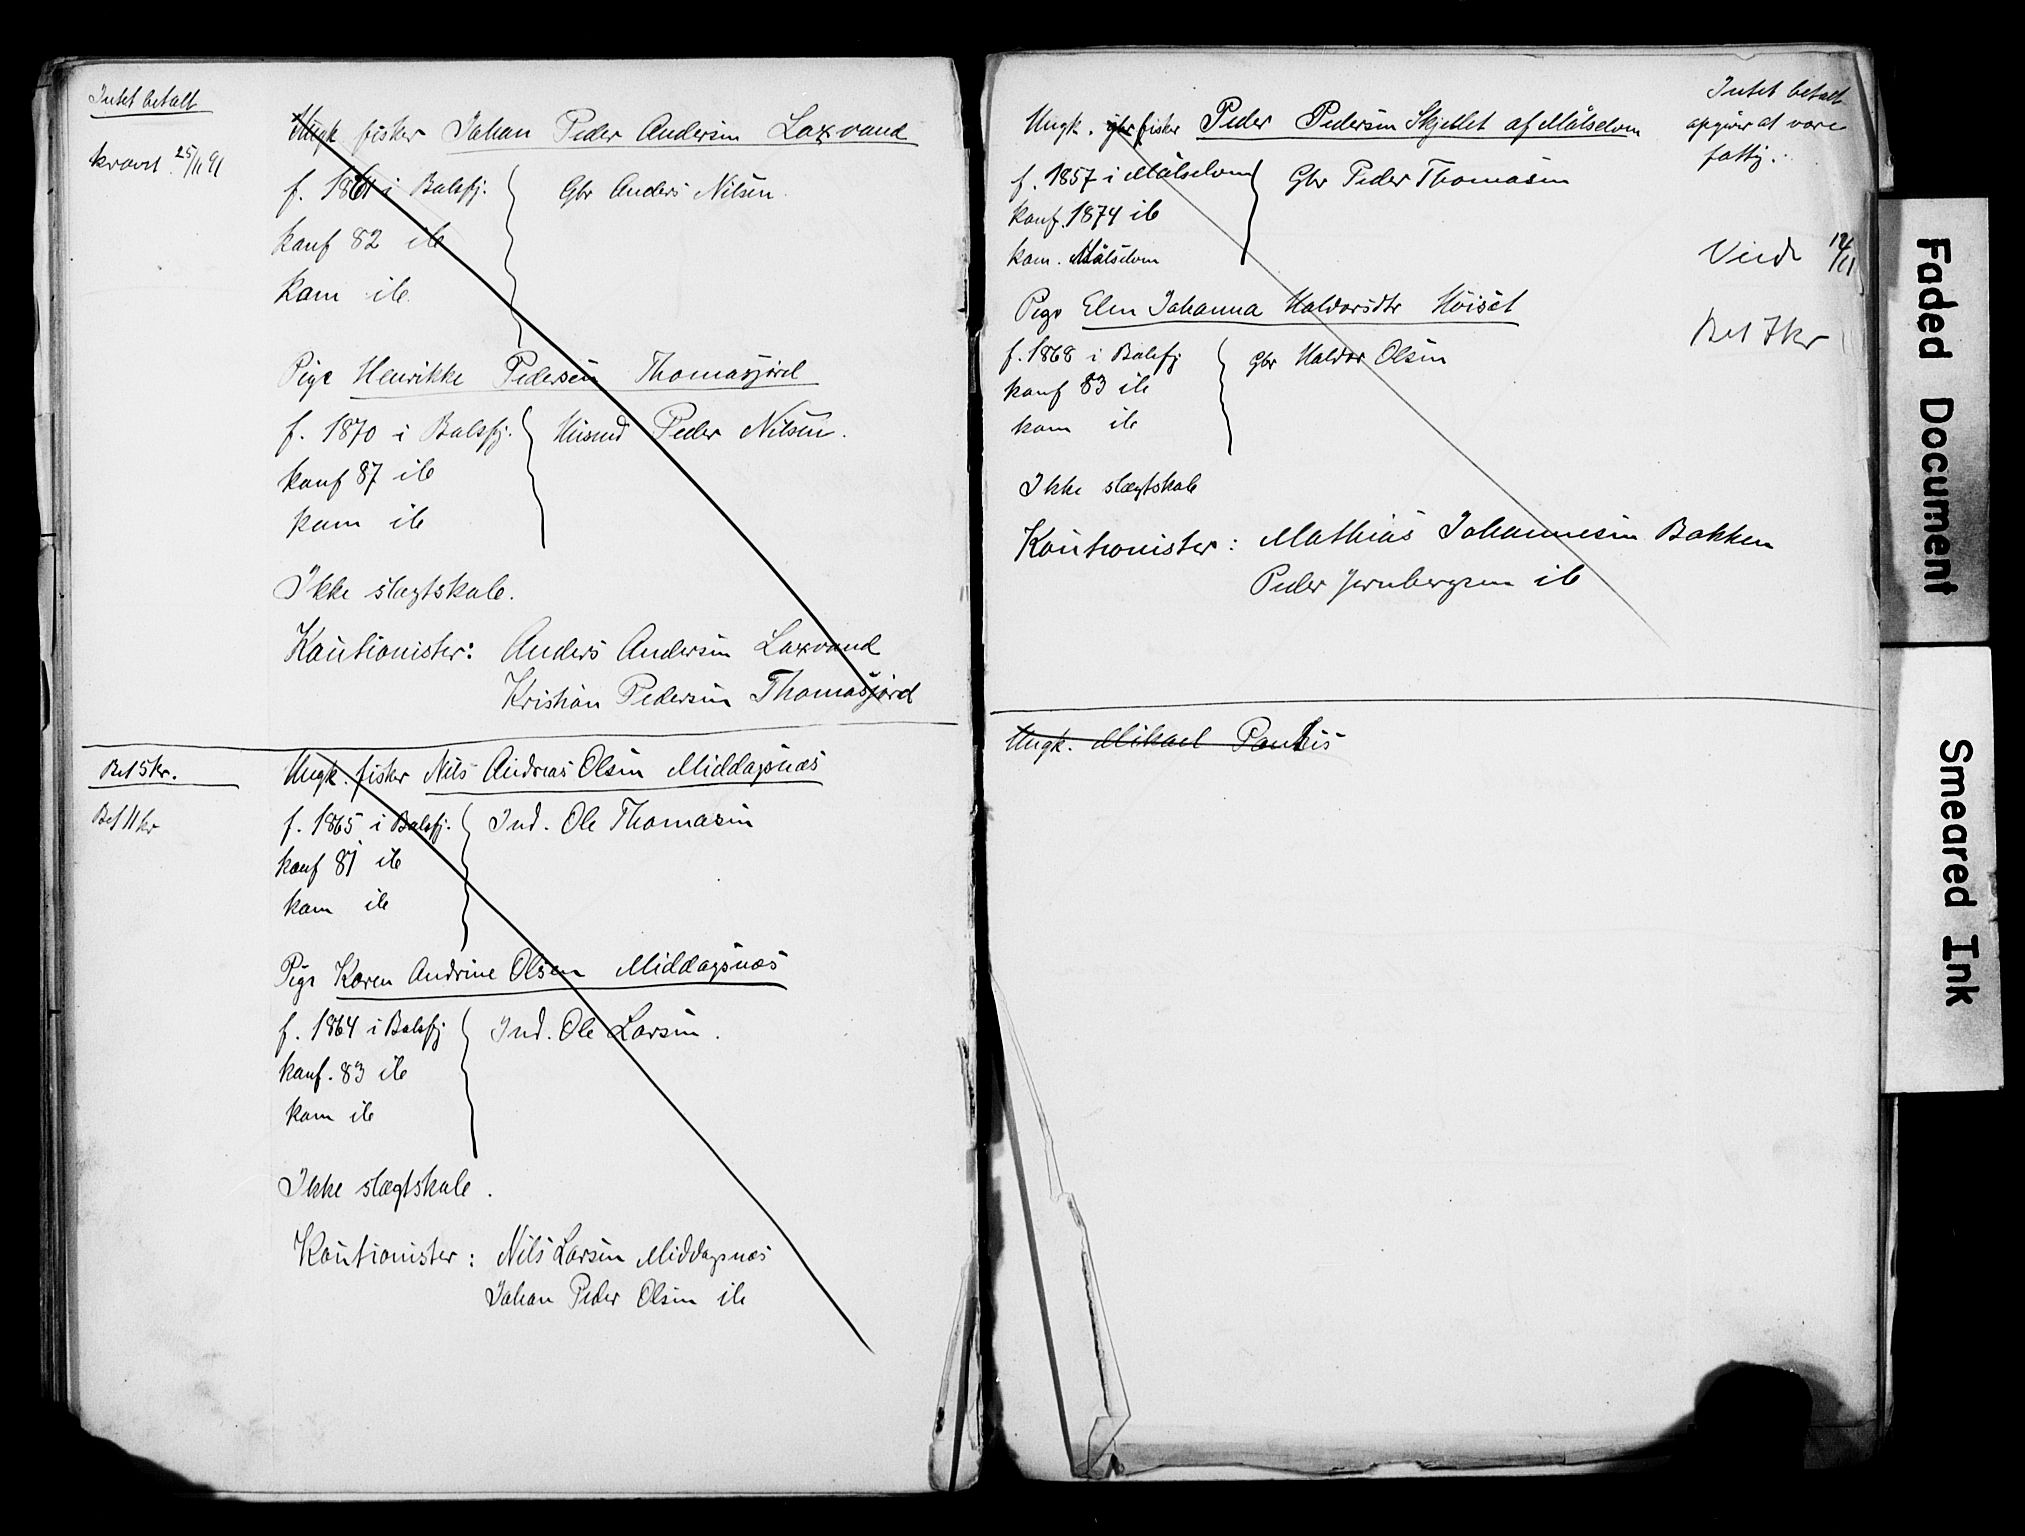 Intet betalt
krævet 25/11 91
Ungk fisker Johan Peder Andersen Laxvand
f. 1861 i Balsfj. Gbr Anders Nilsen.
konf 82 ib
kom ib.
Pige Henrikke Pedersen Thomasjord
f. 1870 i Balsfj. Husmd Peder Nilsen.
konf 87 ib
kom ib
Ikke slægtskab.
Kautionister: Anders Andersen Laxvand
Kristian Pedersen Thomasjord
Bet 5 kr.
Bet 11 kr
Ungk. fisker Nils Andreas Olsen Middagsnæs
f. 1865 i Balsfj. Ind. Ole Thomasen
konf 81 ib
kom ib
Pige Karen Andrine Olsen Middagsnæs
f. 1864 i Balsfj Ind. Ole Larsen.
konf. 83 ib
kom ib
Ikke slægtskab.
Kautionister: Nils Larsen Middagsnæs
Johan Peder Olsen ib
Intet betalt
opgiver at være
fattig.
Ungk. gbr fisker Peder Pedersen Skjellet af Målselven
f. 1857 i Målselven Gbr Peder Thomasen
konf. 1874 ib
kom. Målselven
Viede
Bet 7 kr
Pige Elen Johanna Haldorsdtr Höiset
f. 1868 i Balsfj Gbr Haldor Olsen
konf 83 ib
kom ib
Ikke slægtskab
Kautionister: Mathias Johannesen Bakken
Peder Jernbergsen ib
Ungk. Mikael
Faded Document
Smeared Ink